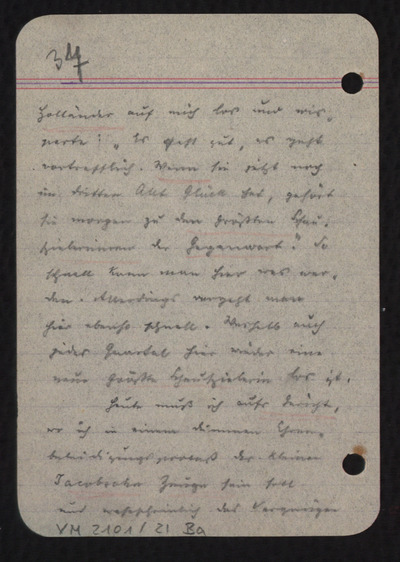 34
Holländer auf mich los und wis-
perte: „Es geht gut, es geht
vortrefflich. Wenn sie jetzt noch
im dritten Akt Glück hat, gehört
sie morgen zu den größten Schau-
spielerinnen der Gegenwart." So
schnell kann man hier was wer-
den. Allerdings vergeht man
hier ebenso schnell. Weshalb auch
jedes Quartal hier wieder eine
neue größte Schauspielerin los ist.
Heute muß ich aufs Gericht,
wo ich in einem dummen Ehren-
beleidigungsprozeß der kleinen
Jacobsohn Zeuge sein soll
und wahrscheinlich das Vergnügen
VM 2101/21 Ba